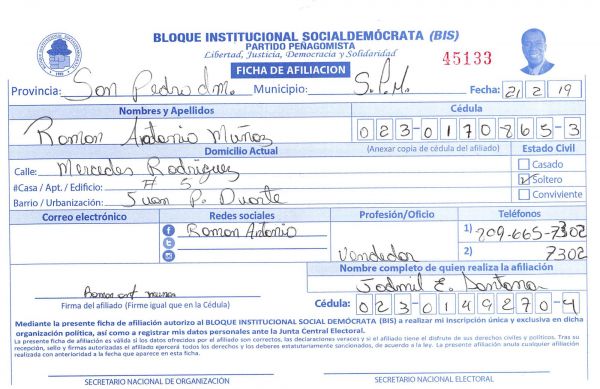 BLOQUE INSTITUCIONAL SOCIALDEMÓCRATA (BIS)
PARTIDO PEÑAGOMISTA
Libertad, Justicia, Democracia y Solidaridad
45133
FICHA DE AFILIACION
Provincia: San Pedro d m. Municipio: S.P.M. Fecha: 21 2 19
Nombres y Apellidos Cédula
Ramon Antonio Muñoz 023-0170865-3
Domicilio Actual (Anexar copia de cédula del afiliado) Estado Civil
Calle: Mercedes Rodriguez Casado
#Casa / Apt. / Edificio: # 5 Soltero
Barrio / Urbanización: Juan P. Duarte Conviviente
Correo electrónico Redes sociales Profesión/Oficio Teléfonos
Ramon Antonio 1) 209-665-7302
Vendedor 2) 7302
Nombre completo de quien realiza la afiliación
E. Santana
Ramon ant muñoz
Firma del afiliado (Firme igual que en la Cédula) Cédula: 023-0149270-4
Mediante la presente ficha de afiliación autorizo al BLOQUE INSTITUCIONAL SOCIAL DEMÓCRATA (BIS) a realizar mi inscripción única y exclusiva en dicha
organización política, así como a registrar mis datos personales ante la Junta Central Electoral.
La presente ficha de afiliación es válida si los datos ofrecidos por el afiliado son correctos, las declaraciones veraces y si el afiliado tiene el disfrute de sus derechos civiles y políticos. Tras su
recepción, sello y firmas autorizadas el afiliado ejercerá todos los derechos y los deberes estatutariamente sancionados, de acuerdo a la ley. La presente afiliación anula cualquier afiliación
realizada con anterioridad a la fecha que aparece en esta ficha.
SECRETARIO NACIONAL DE ORGANIZACIÓN SECRETARIO NACIONAL ELECTORAL